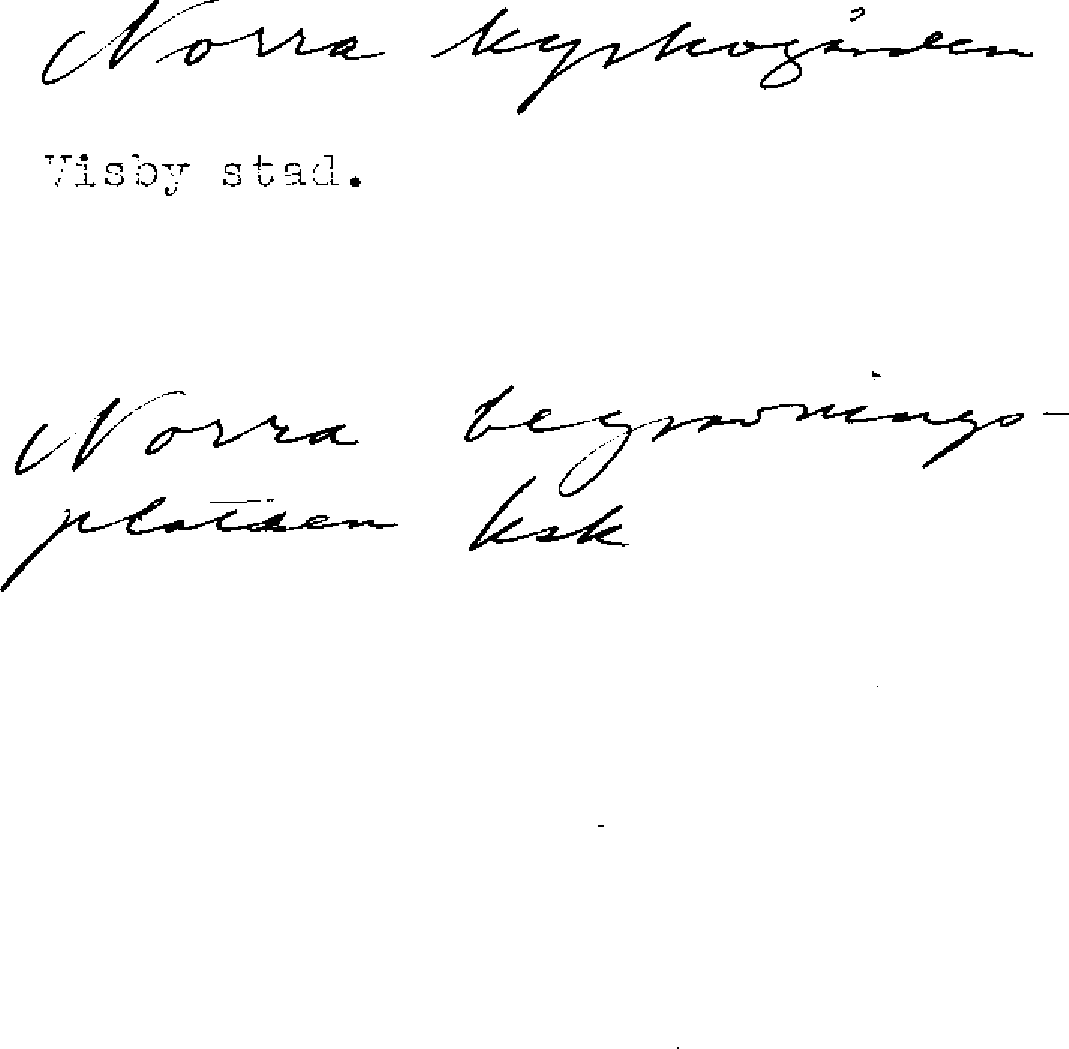 Norra kyrkogården
Visby stad.
Norra begravnings-
platsen ksk